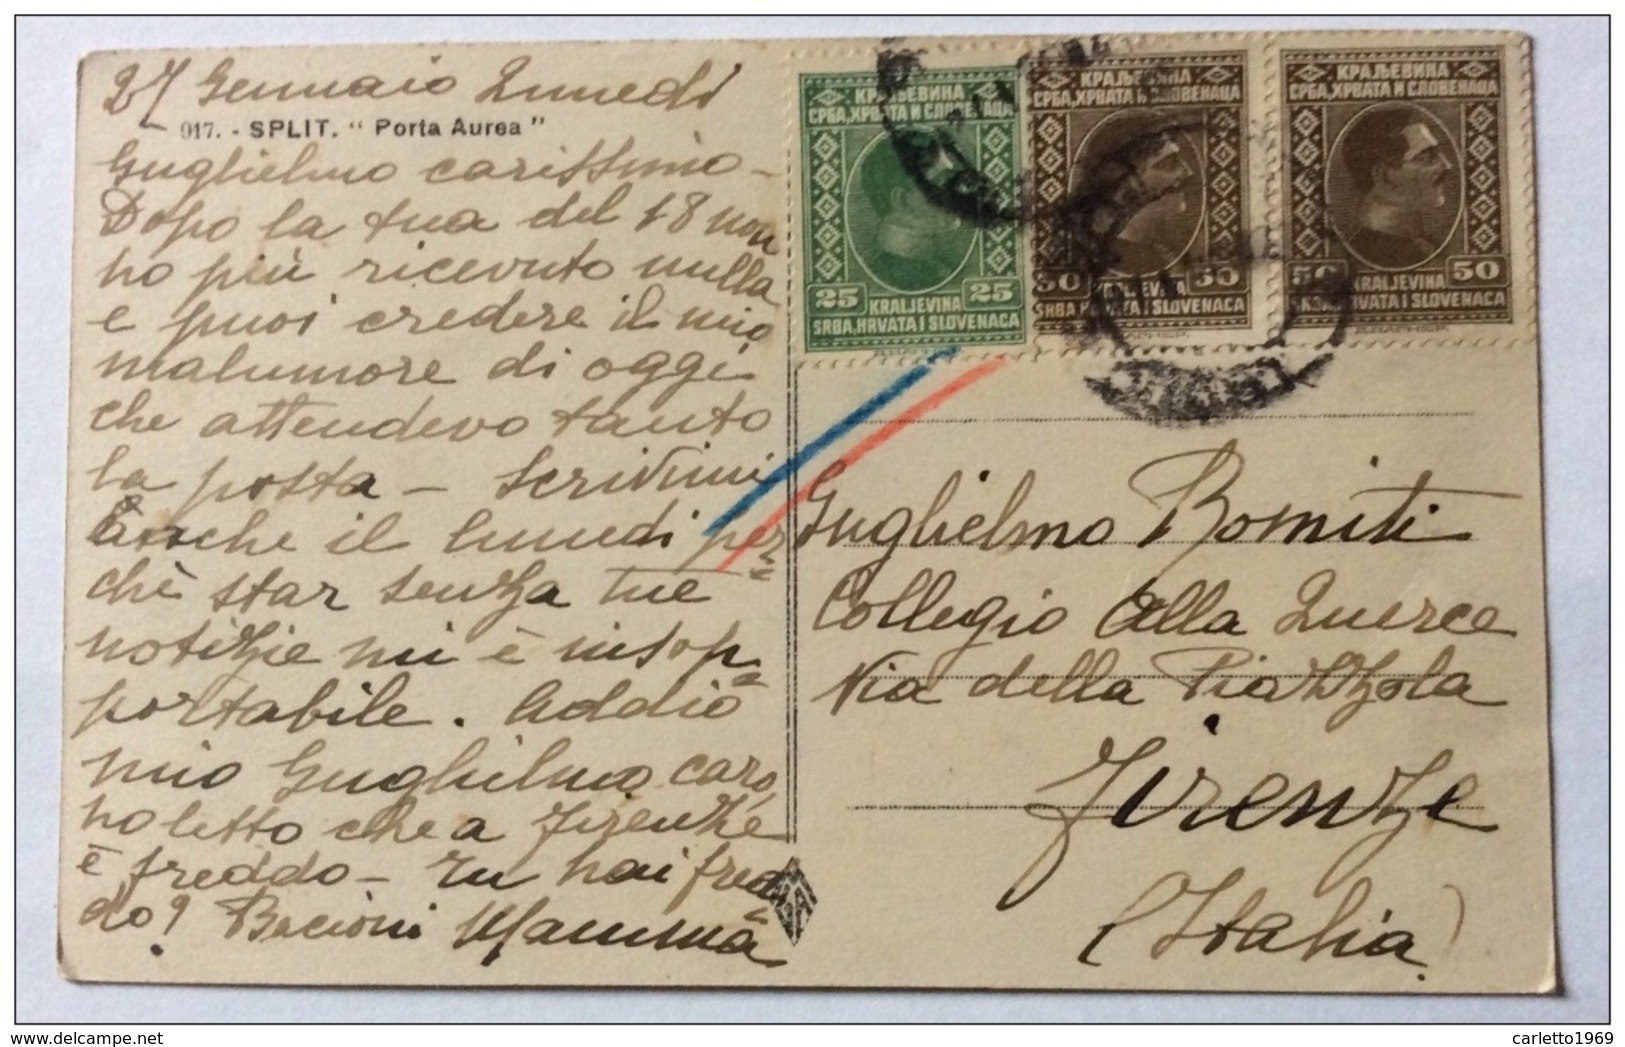 27 Gennaio Lunedì
917. - SPLIT. "Porta Aurea"
Guglielmo carissimo -
Dopo la tua del 18 non
ho più ricevuto nulla
e puoi credere il mio
malumore di oggi
che attendevo tanto
la posta - Scrivimi
anche il lunedì per=
chè star senza tue
notizie mi è insop=
portabile. Addio
mio Guglielmo caro,
ho letto che a Firenze
è freddo - Tu hai fred=
do? Bacioni Mamma
КРАЉЕВИНА
СРБА, ХРВАТА И СЛОВЕНАЦА
25 25
KRALJEVINA
SRBA, HRVATA I SLOVENACA
КРАЉЕВИНА
СРБА, ХРВАТА И СЛОВЕНАЦА
50 50
KRALJEVINA
SRBA, HRVATA I SLOVENACA
КРАЉЕВИНА
СРБА, ХРВАТА И СЛОВЕНАЦА
50 50
KRALJEVINA
SRBA, HRVATA I SLOVENACA
Guglielmo Bomiti
Collegio alla Querce
Via della Piazzola
Firenze
(Italia)
carletto1969